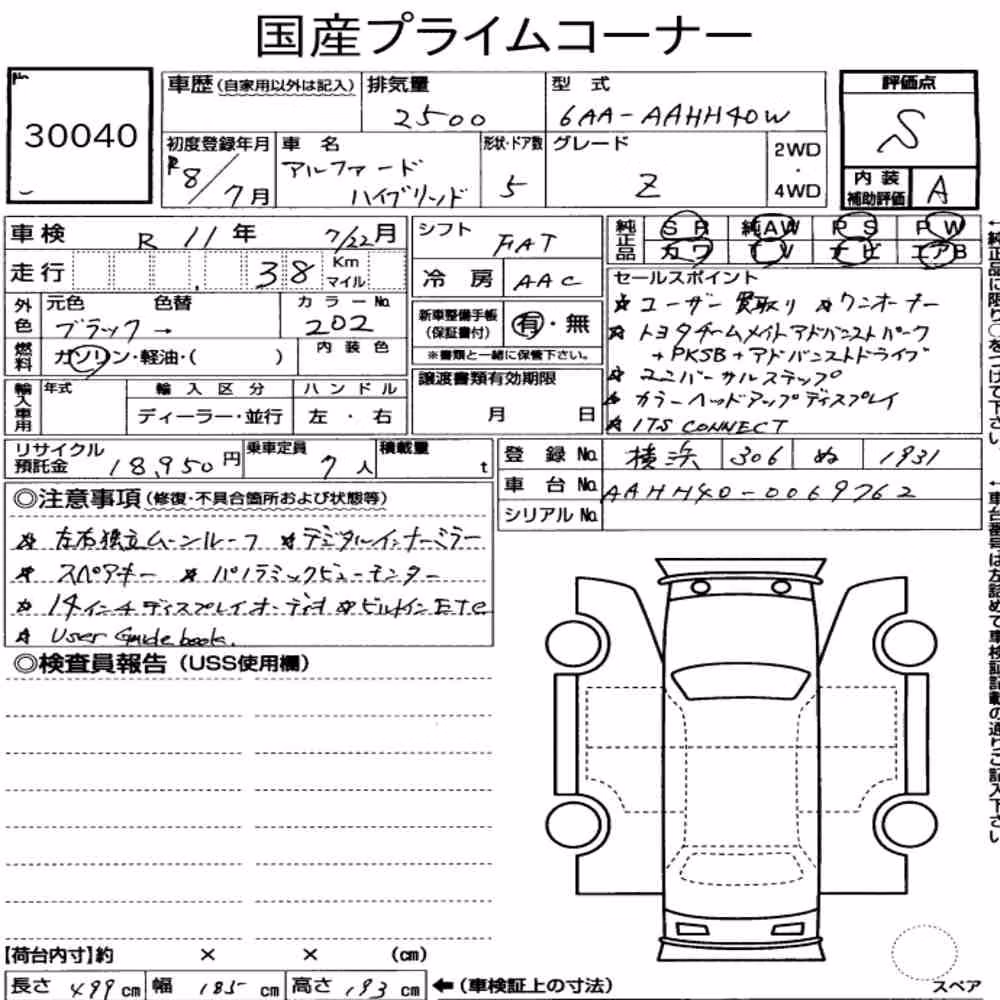 国産プライムコーナー
No
30040
車歴(自家用以外は記入) 排気量 2500 型式 6AA-AAHH40W
評価点 S
初度登録年月 R8/7月 車名 アルファード ハイブリッド 形状・ドア数 5 グレード Z 2WD・4WD
内装補助評価 A
車検 R 11年 7/22月
シフト FAT
純正品 SR 純AW PS PW
カワ TV ナビ エアB
走行 38 Km マイル
冷房 AAC
セールスポイント
外色 元色 色替 カラーNo.
ブラック→ 202
新車整備手帳(保証書付) 有・無
※書類と一緒に保管下さい。
☆ユーザー買取り ☆ワンオーナー
☆トヨタチームメイトアドバンストパーク
+PKSB+アドバンストドライブ
☆ユニバーサルステップ
☆カラーヘッドアップディスプレイ
☆ITS CONNECT
燃料 ガソリン・軽油・( ) 内装色
譲渡書類有効期限
月 日
輸入車用 年式 輸入区分 ハンドル
ディーラー・並行 左・右
リサイクル預託金 18,950円 乗車定員 7人 積載量 t
登録No. 横浜 306 ぬ 1931
車台No. AAHH40-0069762
シリアルNo.
◎注意事項(修復・不具合箇所および状態等)
☆左右独立ムーンルーフ ☆デジタルインナーミラー
☆スペアキー ☆パノラミックビューモニター
☆14インチディスプレイオーディオ ☆ビルトインETC
☆User Guide book.
◎検査員報告(USS使用欄)
【荷台内寸】約 × × (cm)
長さ 499cm 幅 185cm 高さ 193cm ←(車検証上の寸法)
スペア
←純正品に限り○をつけて下さい。
←車台番号は左詰めで車検証記載の通りご記入下さい